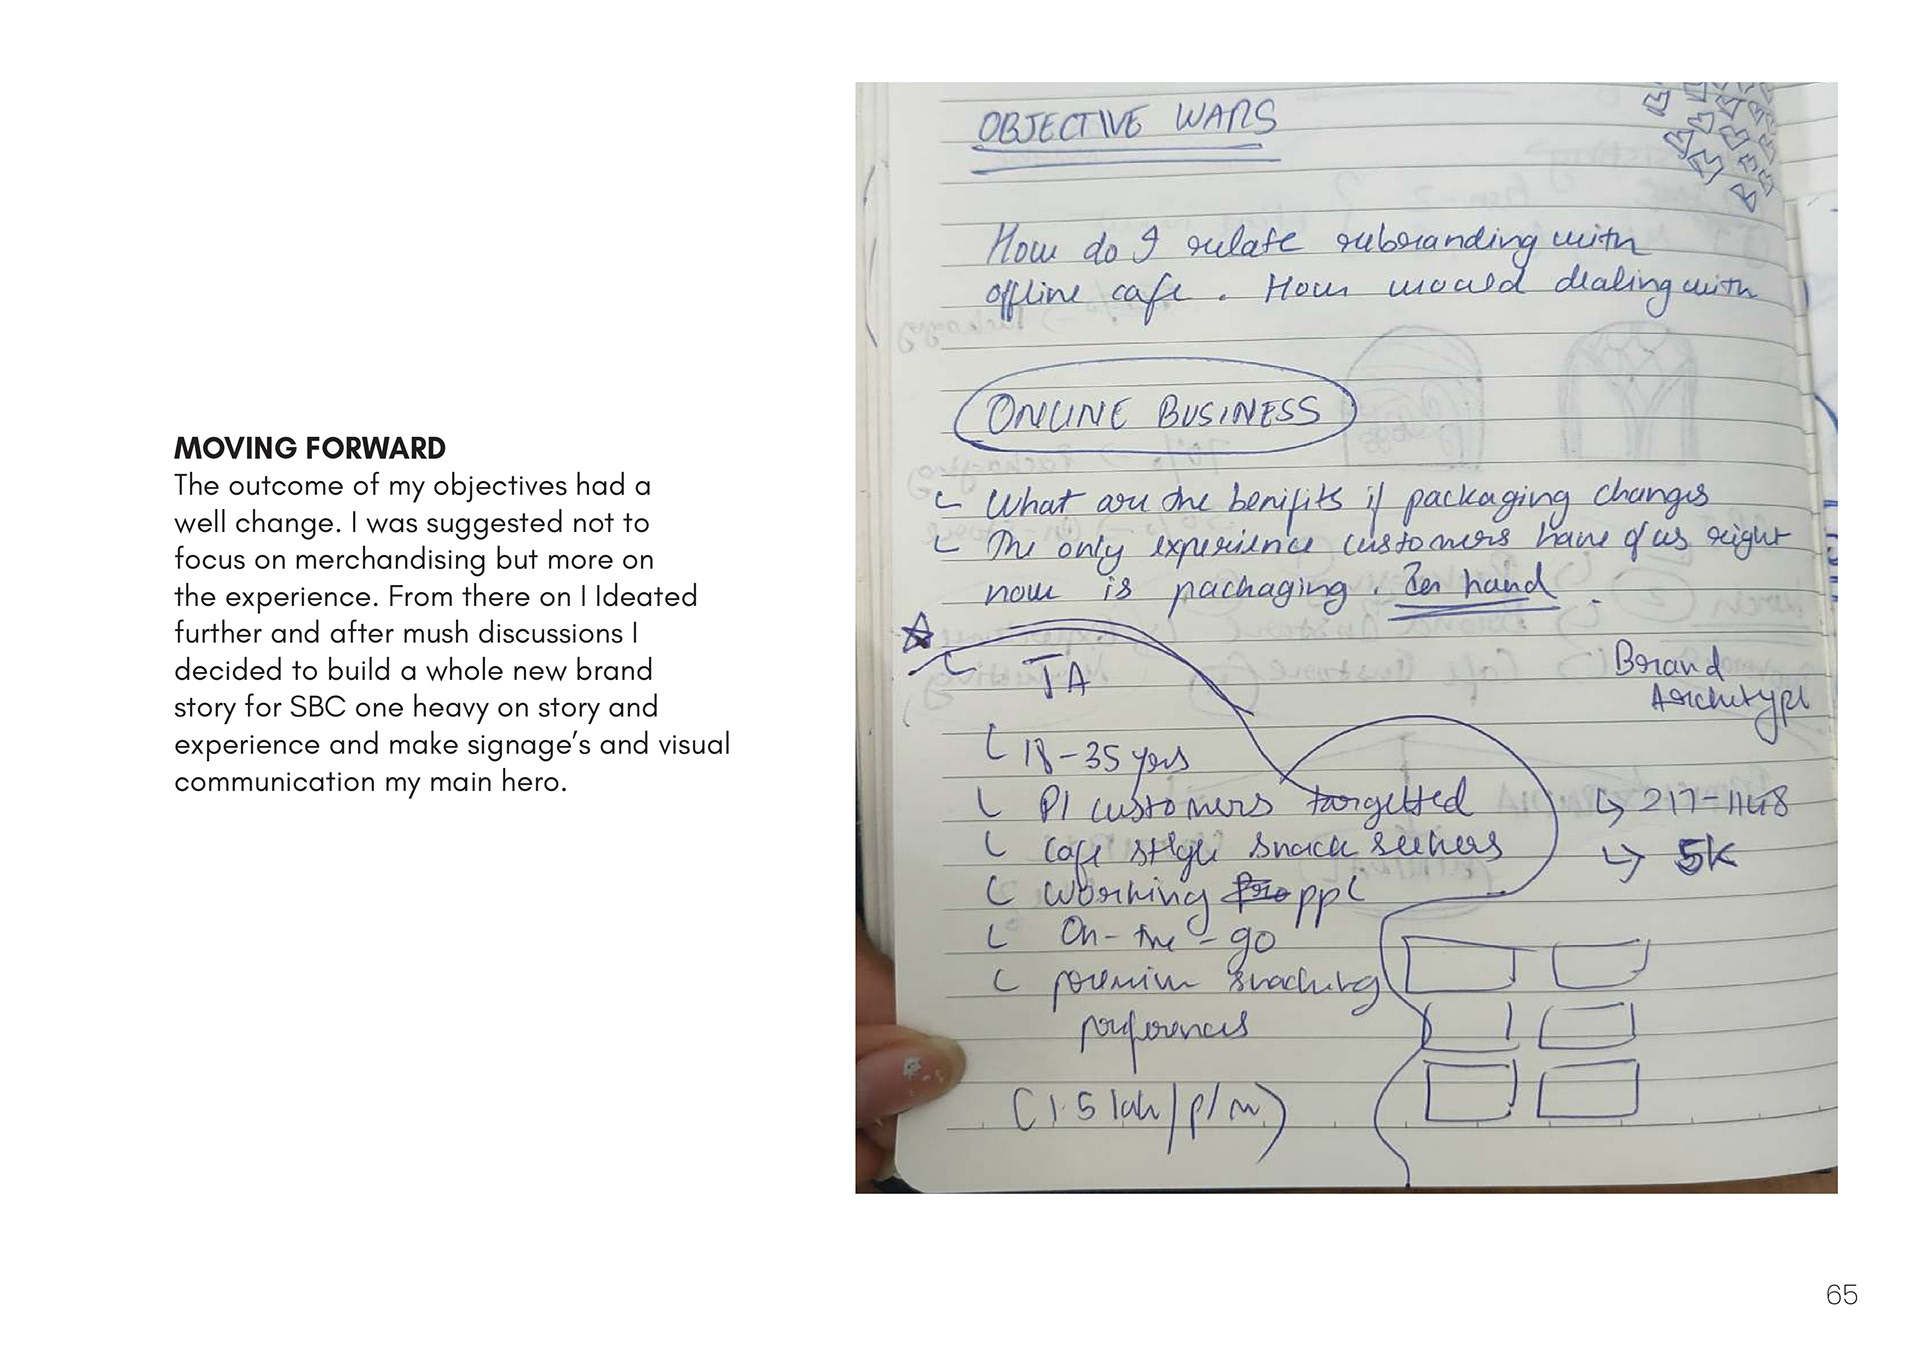 MOVING FORWARD
The outcome of my objectives had a
well change. I was suggested not to
focus on merchandising but more on
the experience. From there on I Ideated
further and after mush discussions I
decided to build a whole new brand
story for SBC one heavy on story and
experience and make signage’s and visual
communication my main hero.
OBJECTIVE WARS
How do I relate rebranding with
offline cafe. How would dealing with
ONLINE BUSINESS
What are the benifits if packaging changes
The only experience customers have of us right
now is packaging. In hand.
TA
Brand
Archetype
18-35 yers
P1 customers targetted
217-1148
Cafe style snack seekers
5K
Working ppl
On-the-go
premium snacking
preferences
(1.5 lakh/p/m)
65